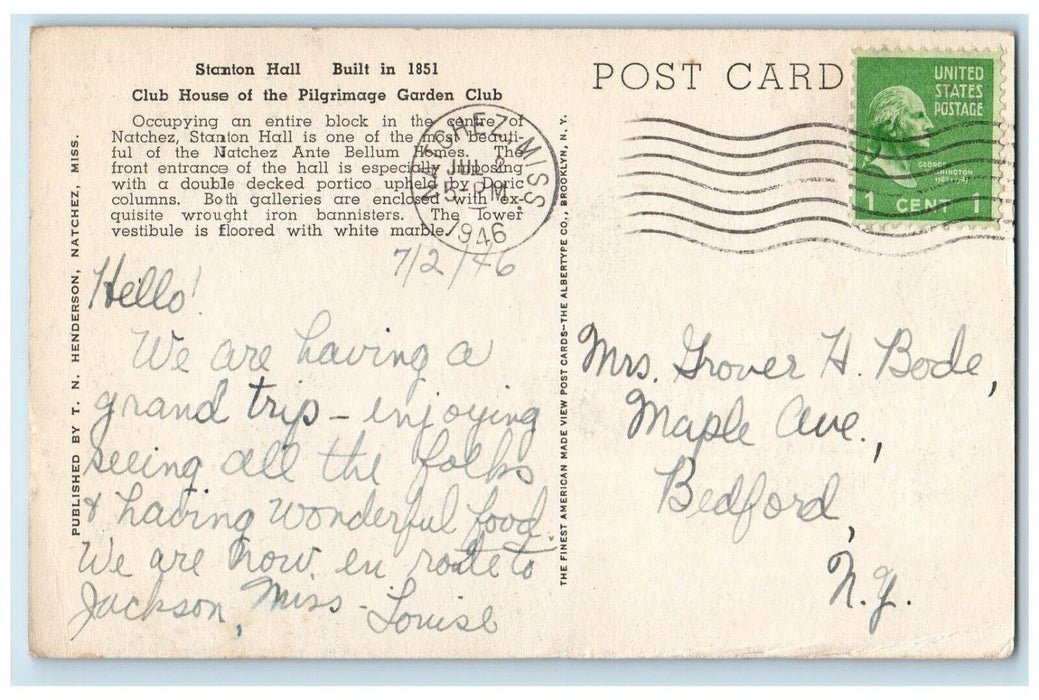 Stanton Hall Built in 1851
Club House of the Pilgrimage Garden Club
Occupying an entire block in the centre of
Natchez, Stanton Hall is one of the most beauti-
ful of the Natchez Ante Bellum Homes. The
front entrance of the hall is especially imposing
with a double decked portico upheld by Doric
columns. Both galleries are enclosed with ex-
quisite wrought iron bannisters. The lower
vestibule is floored with white marble.
PUBLISHED BY T. N. HENDERSON, NATCHEZ, MISS.
7/2/46
Hello!
We are having a
grand trip - enjoying
seeing all the folks
& having wonderful food.
We are now en route to
Jackson, Miss.
Louise
THE FINEST AMERICAN MADE VIEW POST CARDS-THE ALBERTYPE CO., BROOKLYN, N. Y.
POST CARD
NATCHEZ, MISS.
JUL 2
PM
1946
UNITED
STATES
POSTAGE
1 CENT 1
Mrs. Grover H. Bode,
Maple Ave.,
Bedford,
N.Y.